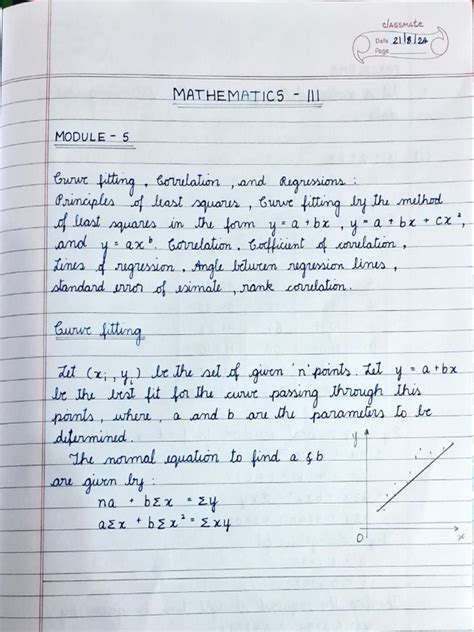 classmate
Date 21/8/24
Page
MATHEMATICS - III
MODULE - 5
Curve fitting, Correlation, and Regressions:
Principles of least squares, Curve fitting by the method
of least squares in the form y = a + bx, y = a + bx + cx²,
and y = ax^b. Correlation, Cofficient of correlation,
Lines of regression, Angle between regression lines,
standard error of esimate, rank correlation.
Curve fitting
Let (xi, yi) be the set of given 'n' points. Let y = a + bx
be the best fit for the curve passing through this
points, where, a and b are the parameters to be
determined.
The normal equation to find a & b
are given by:
na + bΣx = Σy
aΣx + bΣx² = Σxy
y
0
x